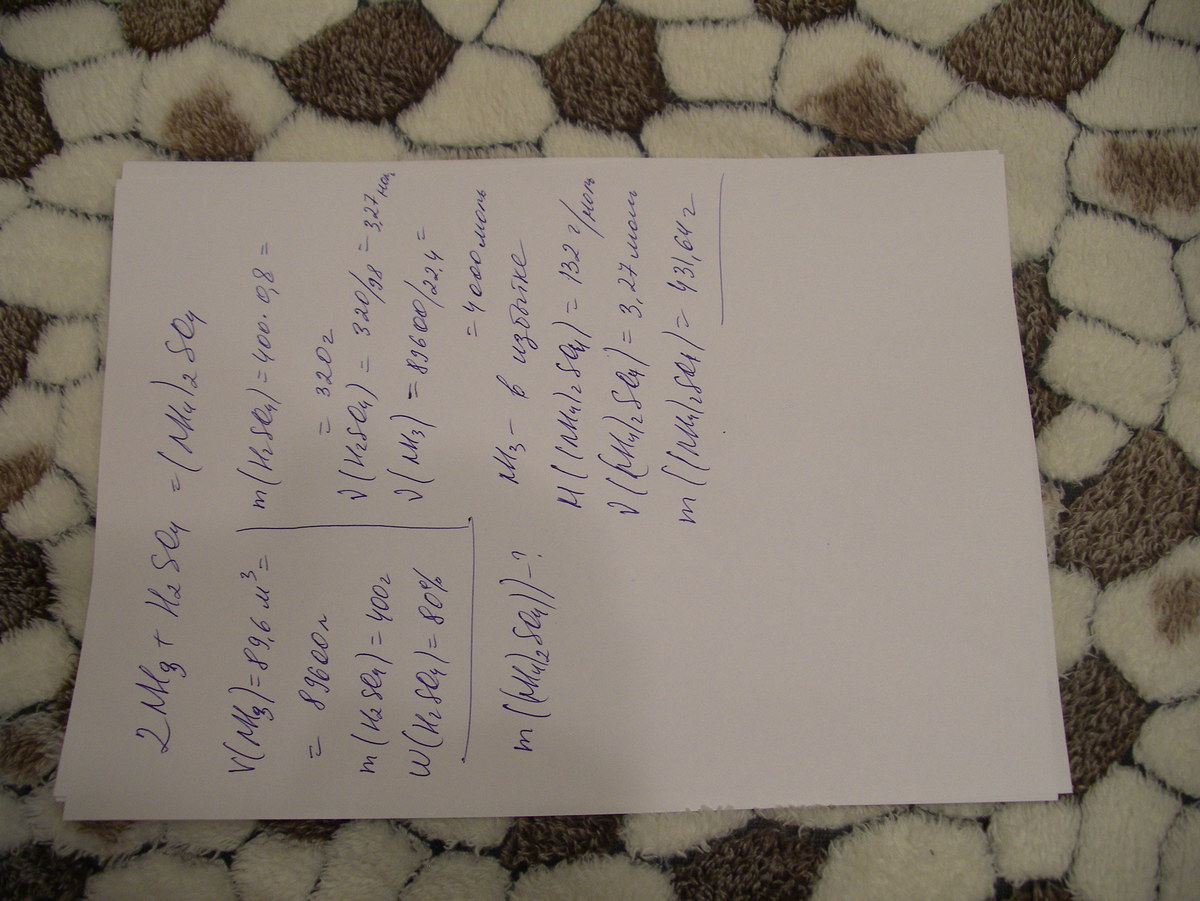 2NH3 + H2SO4 = (NH4)2SO4
V(NH3) = 89,6 м³ =
= 89600 л
m(H2SO4) = 400 г
W(H2SO4) = 80%
m((NH4)2SO4) - ?
m(H2SO4) = 400 · 0,8 =
= 320 г
ν(H2SO4) = 320/98 = 3,27 мол
ν(NH3) = 89600/22,4 =
= 4000 моль
NH3 - в избытке
M((NH4)2SO4) = 132 г/моль
ν((NH4)2SO4) = 3,27 моль
m((NH4)2SO4) = 431,64 г